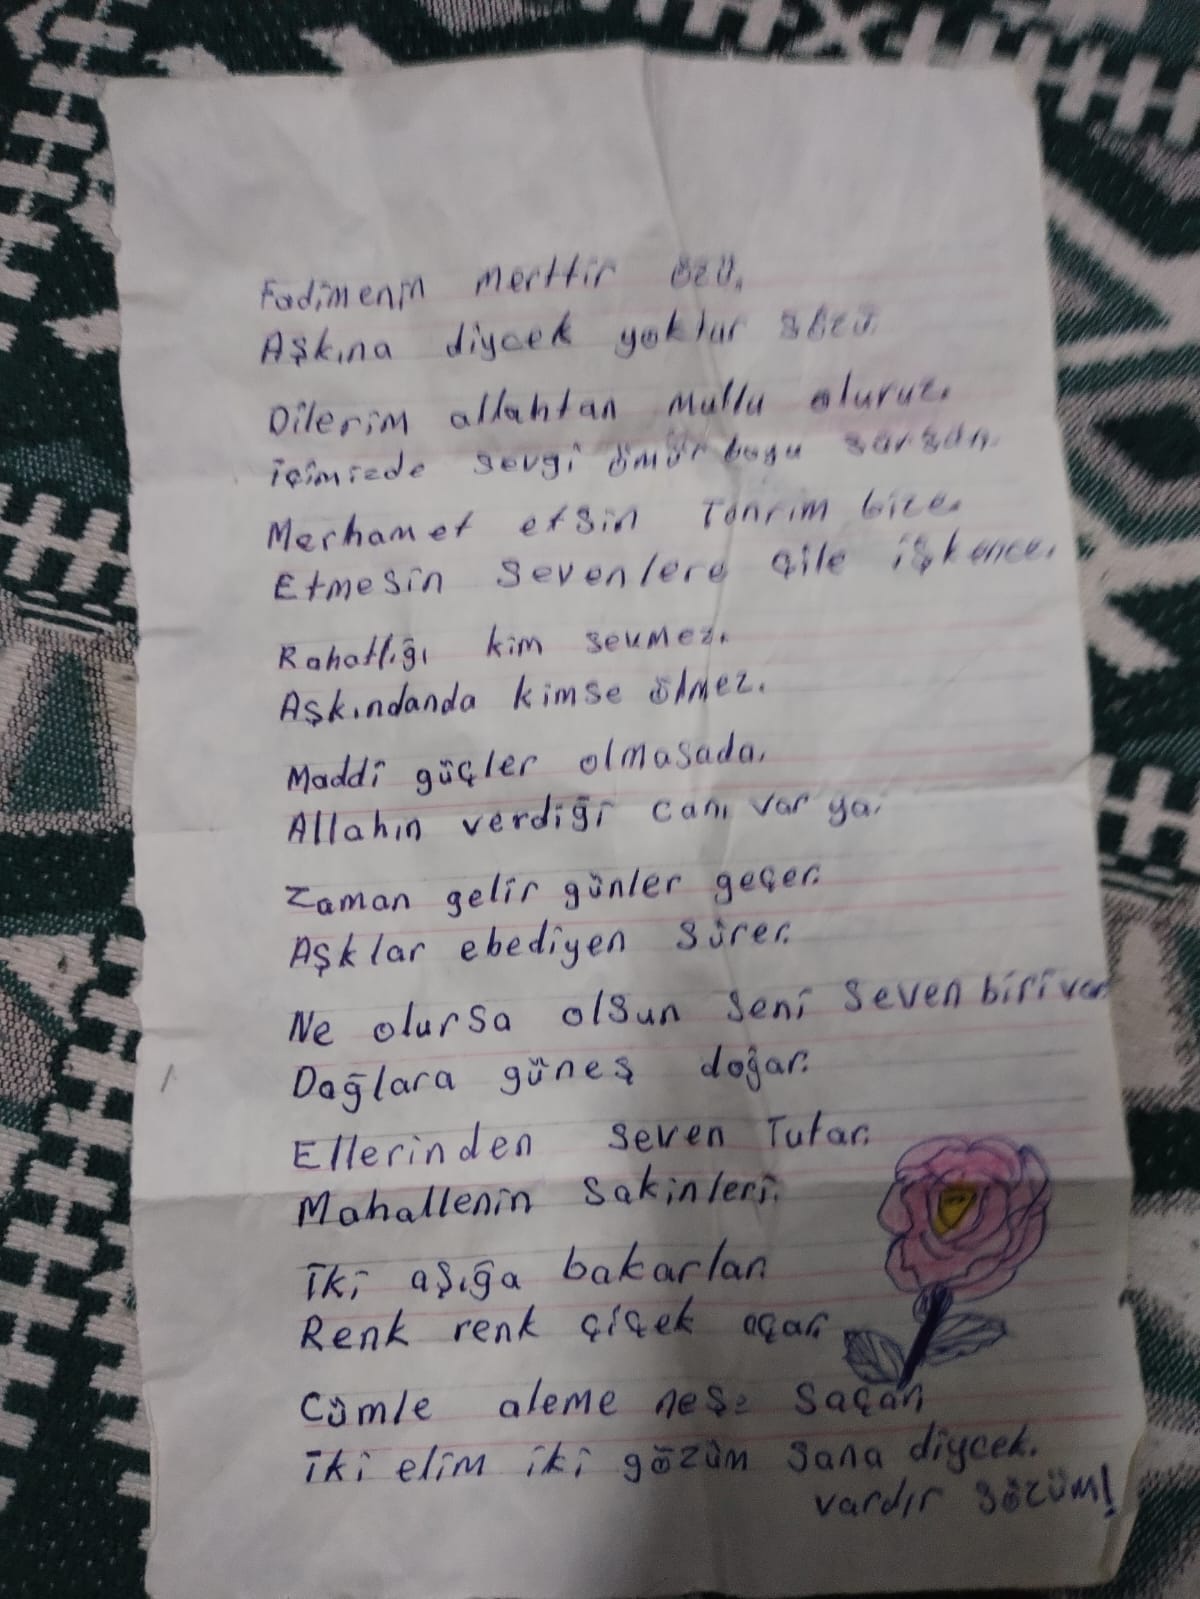 Fadimenin merttir özü.
Aşkına diycek yoktur sözü.
Dilerim allahtan mutlu oluruz.
içimizde sevgi ömür boyu sarsan.
Merhamet etsin Tanrım bize.
Etmesin sevenlere çile işkence.
Rahatlığı kim sevmez.
Aşkındanda kimse ölmez.
Maddi güçler olmasada.
Allahın verdiği canı var ya.
Zaman gelir günler geçer.
Aşklar ebediyen sürer.
Ne olursa olsun seni seven biri var
Dağlara güneş doğar.
Ellerinden seven Tutar.
Mahallenin sakinleri.
iki aşığa bakarlar
Renk renk çiçek açar
Cümle aleme neşe saçan
iki elim iki gözüm sana diycek.
vardır sözüm!